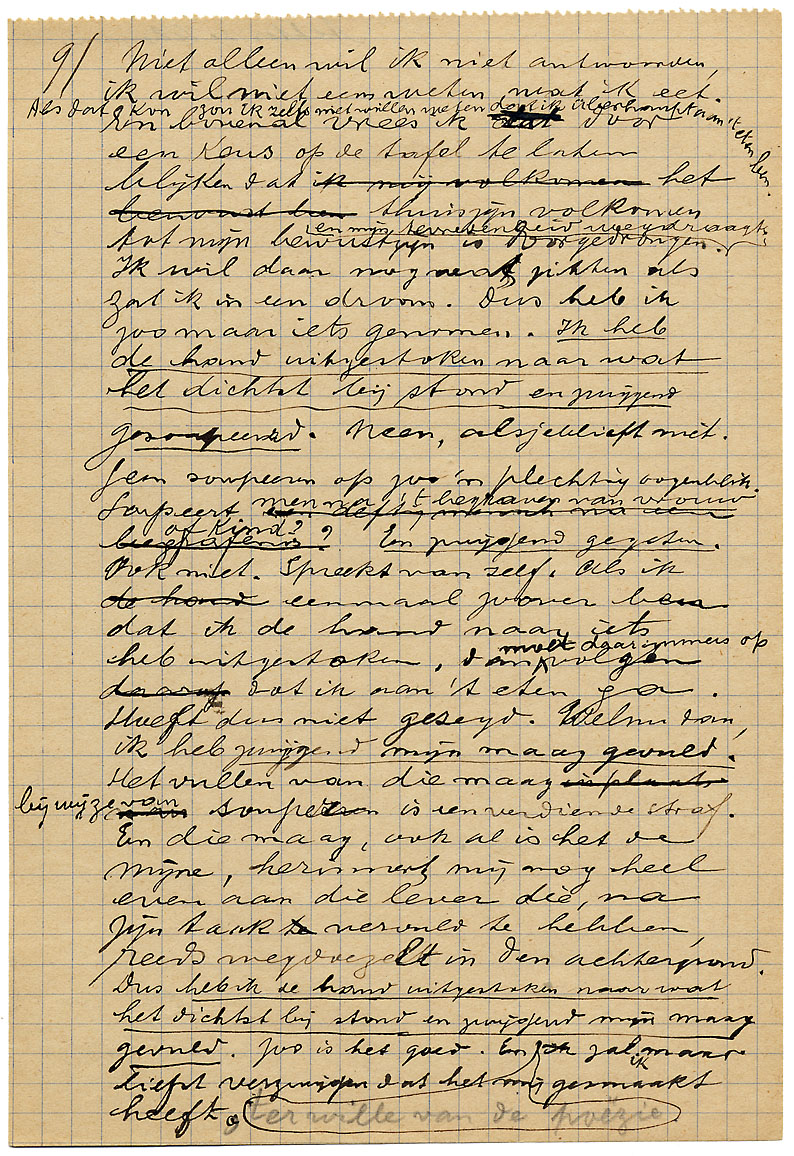 9/ Niet alleen wil ik niet antwoorden,
ik wil niet eens weten wat ik eet.
Als dat kon zou ik zelfs niet willen weten dat ik überhaupt aan 't eten ben.
En bovenal vrees ik dat door
een keus op de tafel te laten
blijken dat ik mij volkomen het
bewust ben thuiszijn volkomen
en mijn tevredenheid wegdraagt.
tot mijn bewustzijn is doorgedrongen.
Ik wil daar nog wat zitten als
zat ik in een droom. Dus heb ik
zoo maar iets genomen. Ik heb
de hand uitgestoken naar wat
het dichtst bij stond en zwijgend
gesoupeerd. Neen, alsjeblieft niet.
Geen soupeeren op zoo'n plechtig oogenblik.
Soupeert men na 't begraven van vrouw
een deftig mensch na een
of kind?
begrafenis? En zwijgend gegeten.
Ook niet. Spreekt van zelf. Als ik
de hand eenmaal zoover ben
dat ik de hand naar iets
heb uitgestoken, dan moet daar immers op
volgen
daarop dat ik aan 't eten ga.
Hoeft dus niet gezegd. Welnu dan,
ik heb zwijgend mijn maag gevuld.
Het vullen van die maag in plaats
bij wijze van souper is een verdiende straf.
En die maag, ook al is het de
mijne, herinnert mij nog heel
even aan die lever die, na
zijn taak te vervuld te hebben,
reeds wegdoezelt in den achtergrond.
Dus heb ik de hand uitgestoken naar wat
het dichtst bij stond en zwijgend mijn maag
gevuld. Zoo is het goed. En ik zal maar
ik
liefst verzwijgen dat het mij gesmaakt
heeft, ter wille van de poëzie.